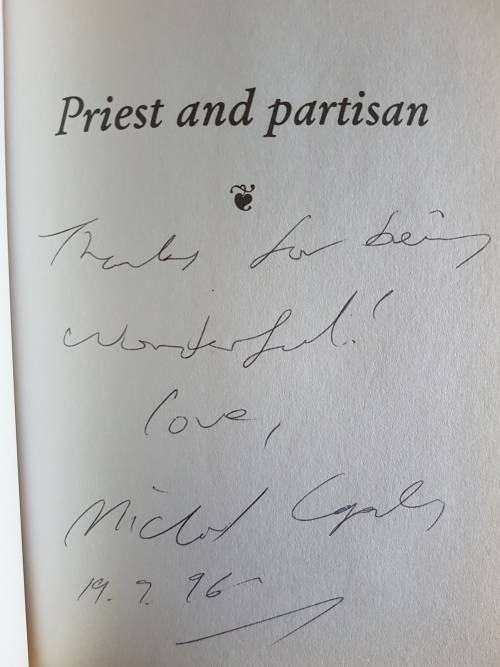 Priest and partisan
Thanks for being
wonderful!
Love,
Michael
19. 9. 96